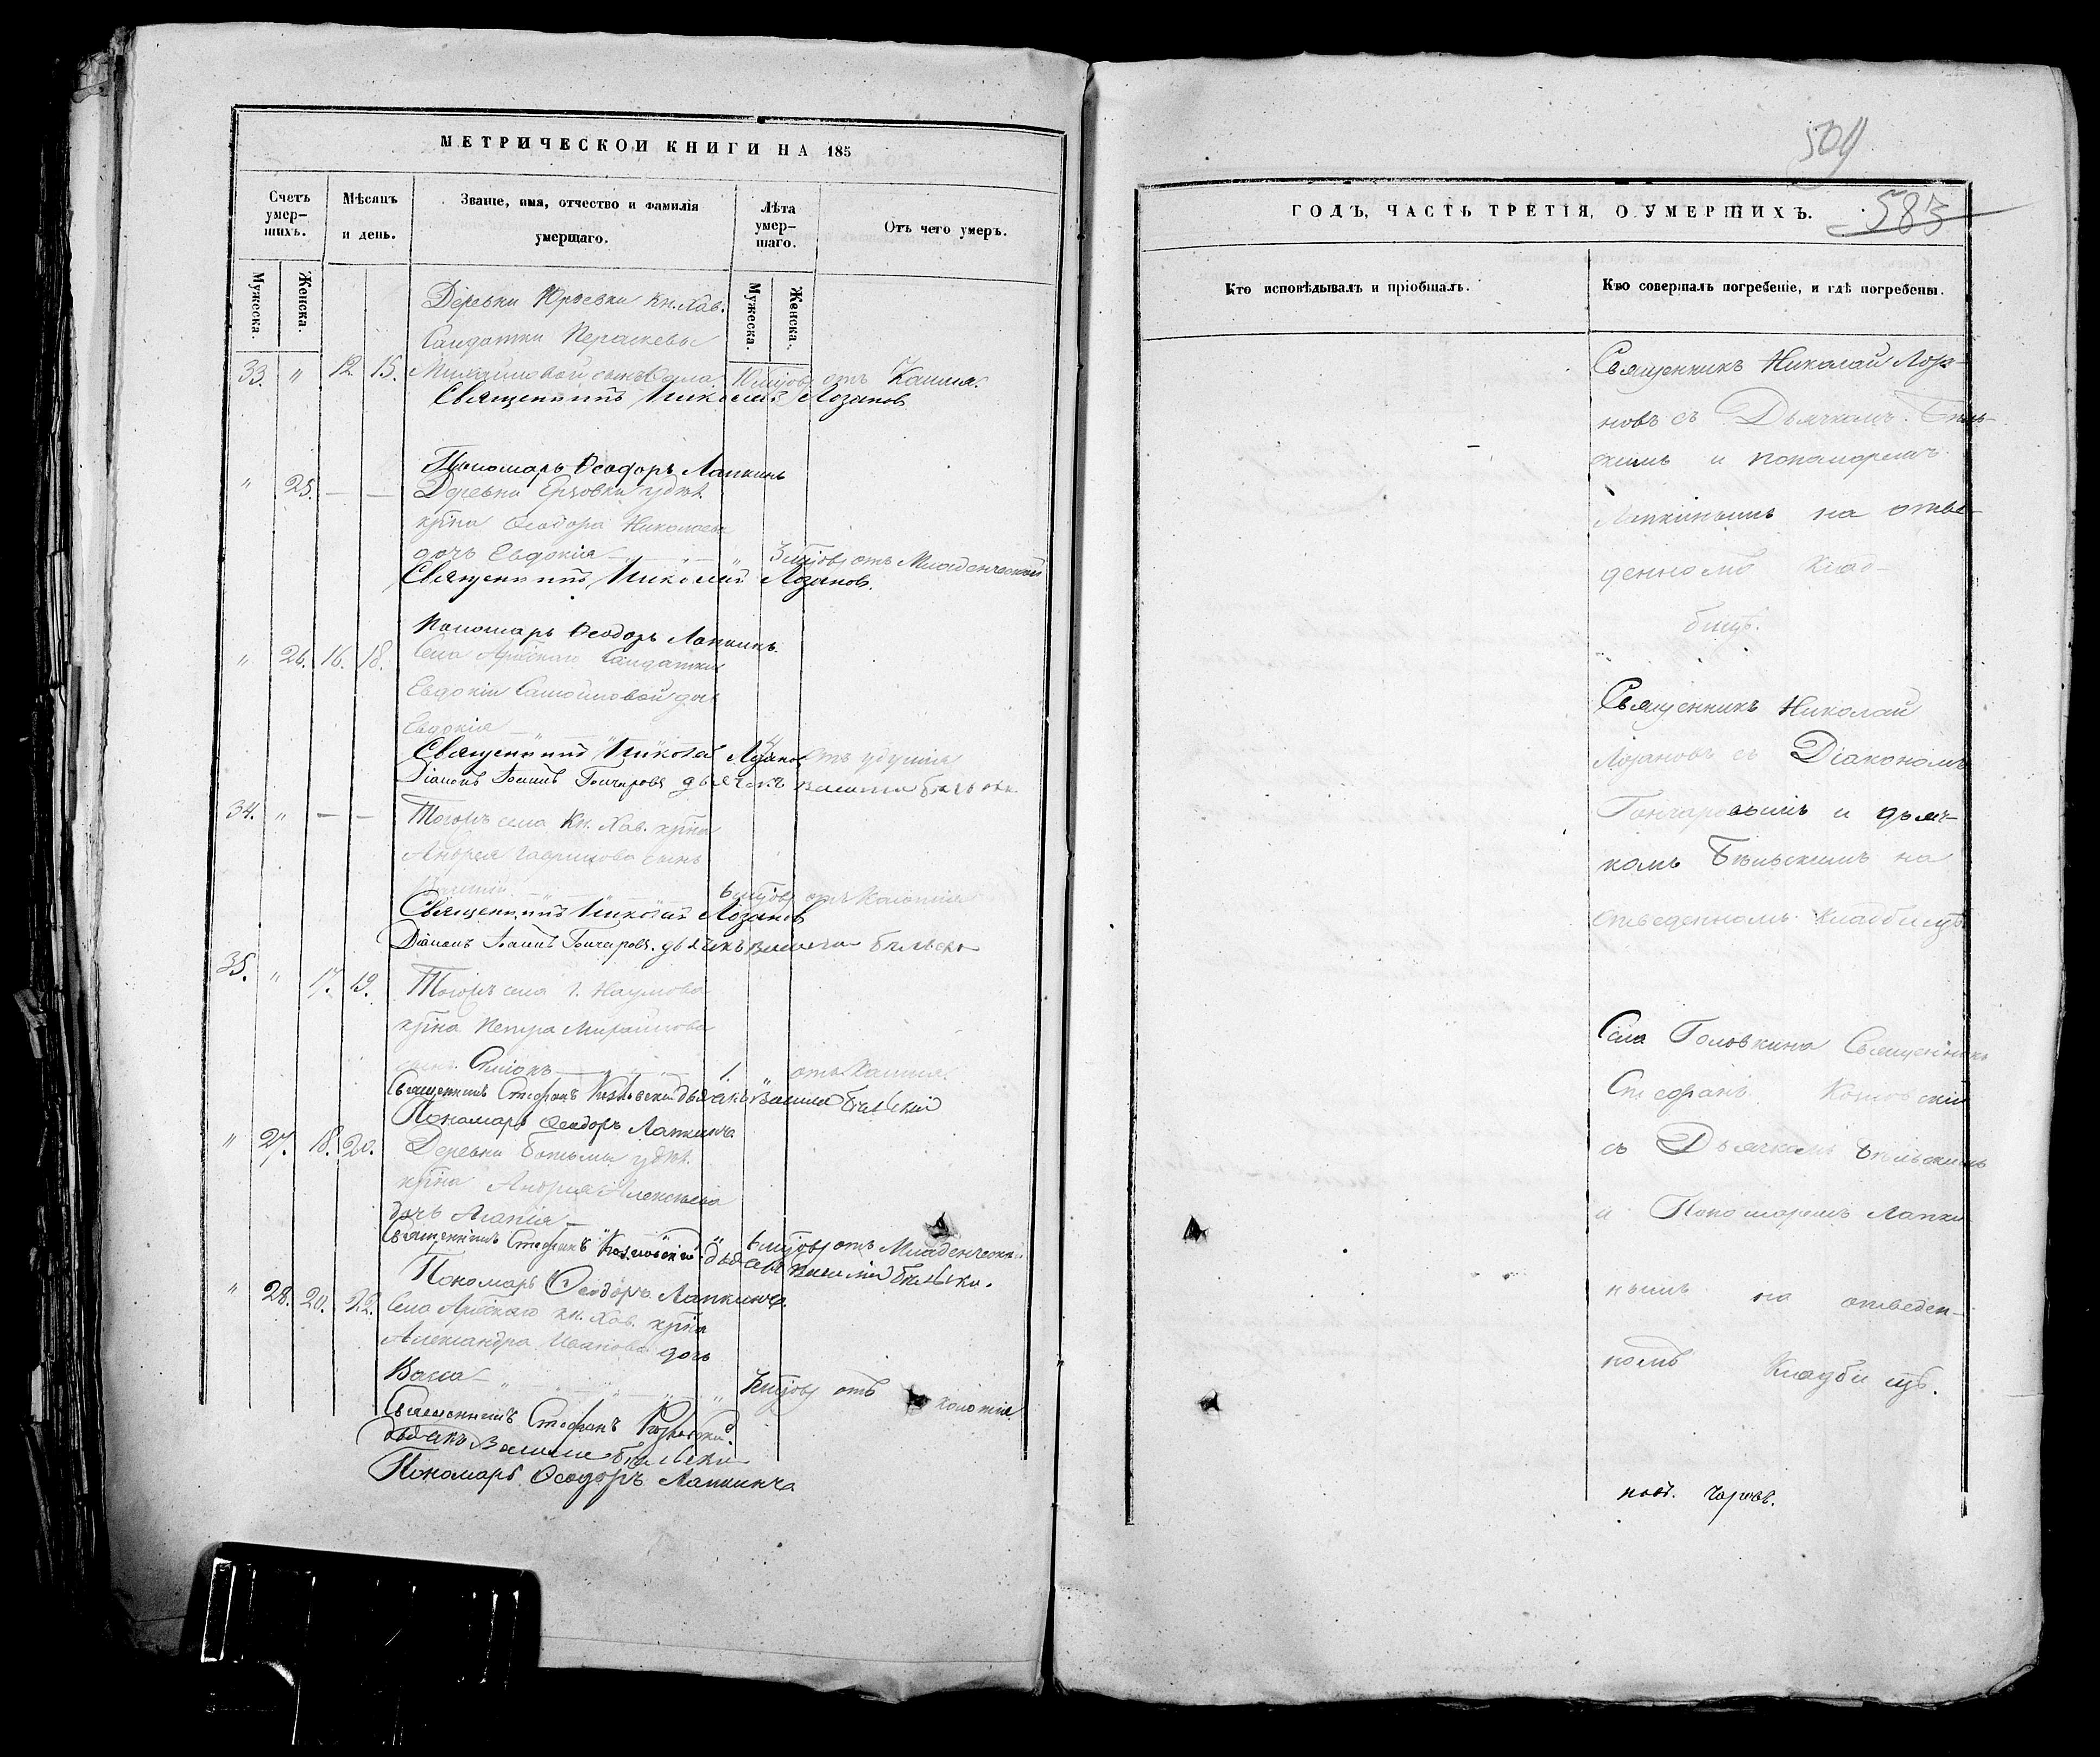 МЕТРИЧЕСКОЙ КНИГИ НА 185
Счетъ умер-шихъ.
Мѣсяцъ и день.
Званіе, имя, отчество и фамилія умершаго.
Лѣта умер-шаго.
Отъ чего умеръ.
Мужеска.
Женска.
Мужеска.
Женска.
Деревни Юрьевки Кн. Хав.
Салдатки Парасковьи
33. " 12. 15. Михайловой сынъ 10 мѣцовъ отъ Кашля.
Священникъ Николай Лозановъ
Пономарь Ѳеодоръ Лапкинъ
" 25. — — Деревни Ерзовки удѣл.
крѣна Ѳеодора Николаева
дочь Евдокія " 3 мѣцовъ отъ Младенческой
Священникъ Николай Лозановъ.
Пономарь Ѳеодоръ Лапкинъ.
" 26. 16. 18. Села Арбскаго Салдатки
Евдокіи Самойловой дочь
Евдокія отъ удушія
Священникъ Николай Лозановъ
Діаконъ Іоаннъ Гончаровъ дьячекъ Василій Бѣльскій
34. " — — Тогожъ села Кн. Хав. крѣна
Андрея Гаврилова сынъ
6 мѣцовъ отъ Колотія
Священникъ Николай Лозановъ
Діаконъ Іоаннъ Гончаровъ. дьячекъ Василій Бѣльскій
35. " 17. 19. Тогожъ села Г. Наумова
крѣна Петра Михайлова
сынъ Симонъ 1. " отъ Кашля.
Священникъ Стефанъ Козловскій дьячекъ Василій Бѣльскій
Пономарь Ѳеодоръ Лапкинъ
" 27. 18. 20. Деревни Ботьмы удѣл.
крѣна Андрея Алексѣева
дочь Агапія " 6 мѣцовъ отъ Младенческой
Священникъ Стефанъ Козловскій дьячекъ Василій Бѣльскій.
Пономарь Ѳеодоръ Лапкинъ.
" 28. 20. 22. Села Арбскаго Кн. Хав. крѣна
Александра Иванова дочь
Васса " мѣцовъ отъ Колотія.
Священникъ Стефанъ Козловскій.
дьячекъ Василій Бѣльскій
Пономарь Ѳеодоръ Лапкинъ
504
583
ГОДЪ, ЧАСТЬ ТРЕТІЯ, О УМЕРШИХЪ.
Кто исповѣдывалъ и пріобщалъ.
Кто совершалъ погребеніе, и гдѣ погребены.
Священникъ Николай Лоза-
новъ съ Дьячкомъ Бѣль-
скимъ и пономаремъ
Лапкинымъ на отве-
денномъ Клад-
бищѣ.
Священникъ Николай
Лозановъ съ Діакономъ
Гончаровымъ и дьяч-
комъ Бѣльскимъ на
отведенномъ кладбищѣ.
Села Головкина Священникъ
Стефанъ Козловскій
съ Дьячкомъ Бѣльскимъ
и Пономаремъ Лапки-
нымъ на отведен-
номъ Кладбищѣ.